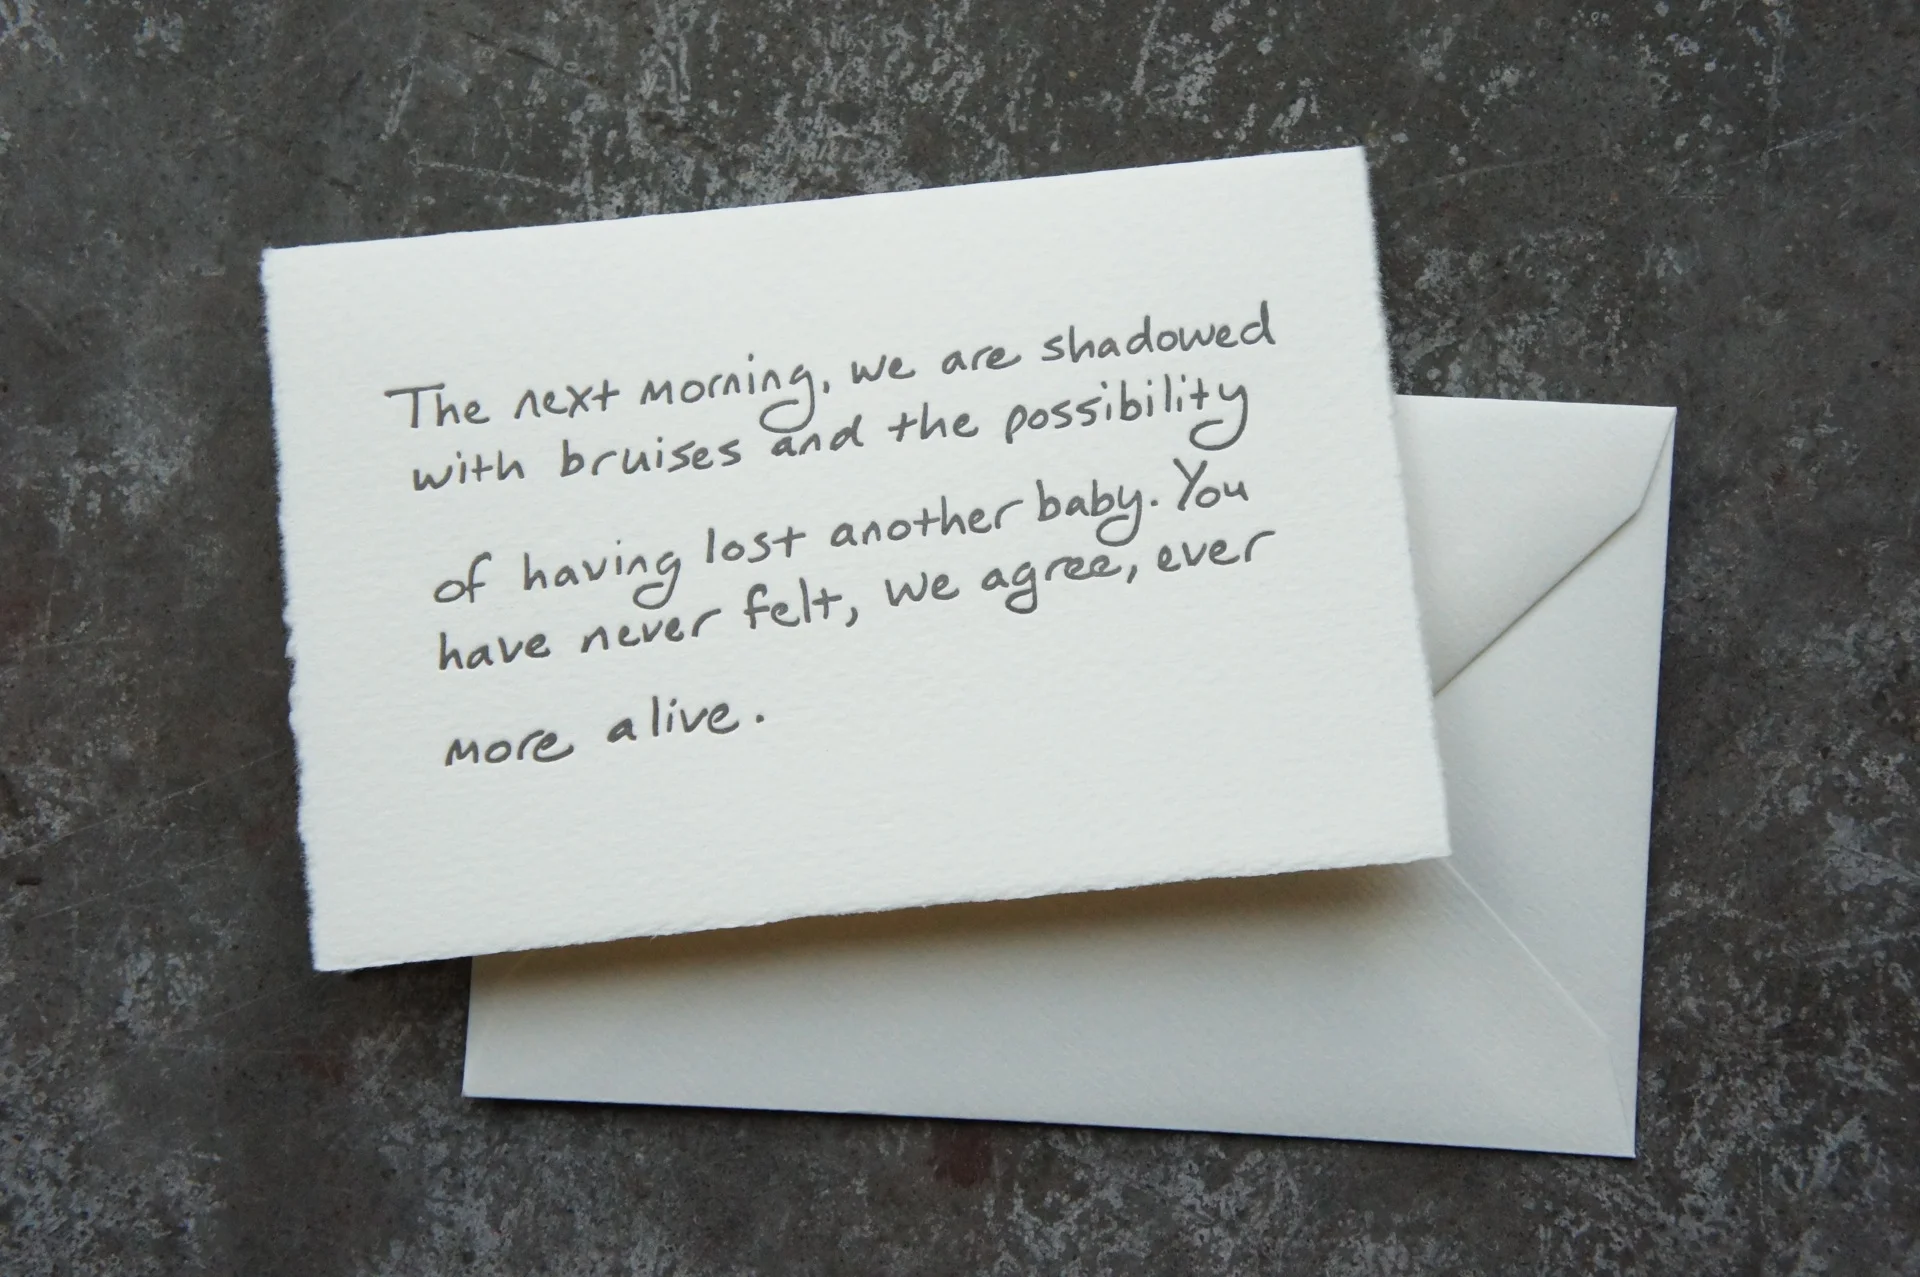 The next morning, we are shadowed
with bruises and the possibility
of having lost another baby. You
have never felt, we agree, ever
more alive.